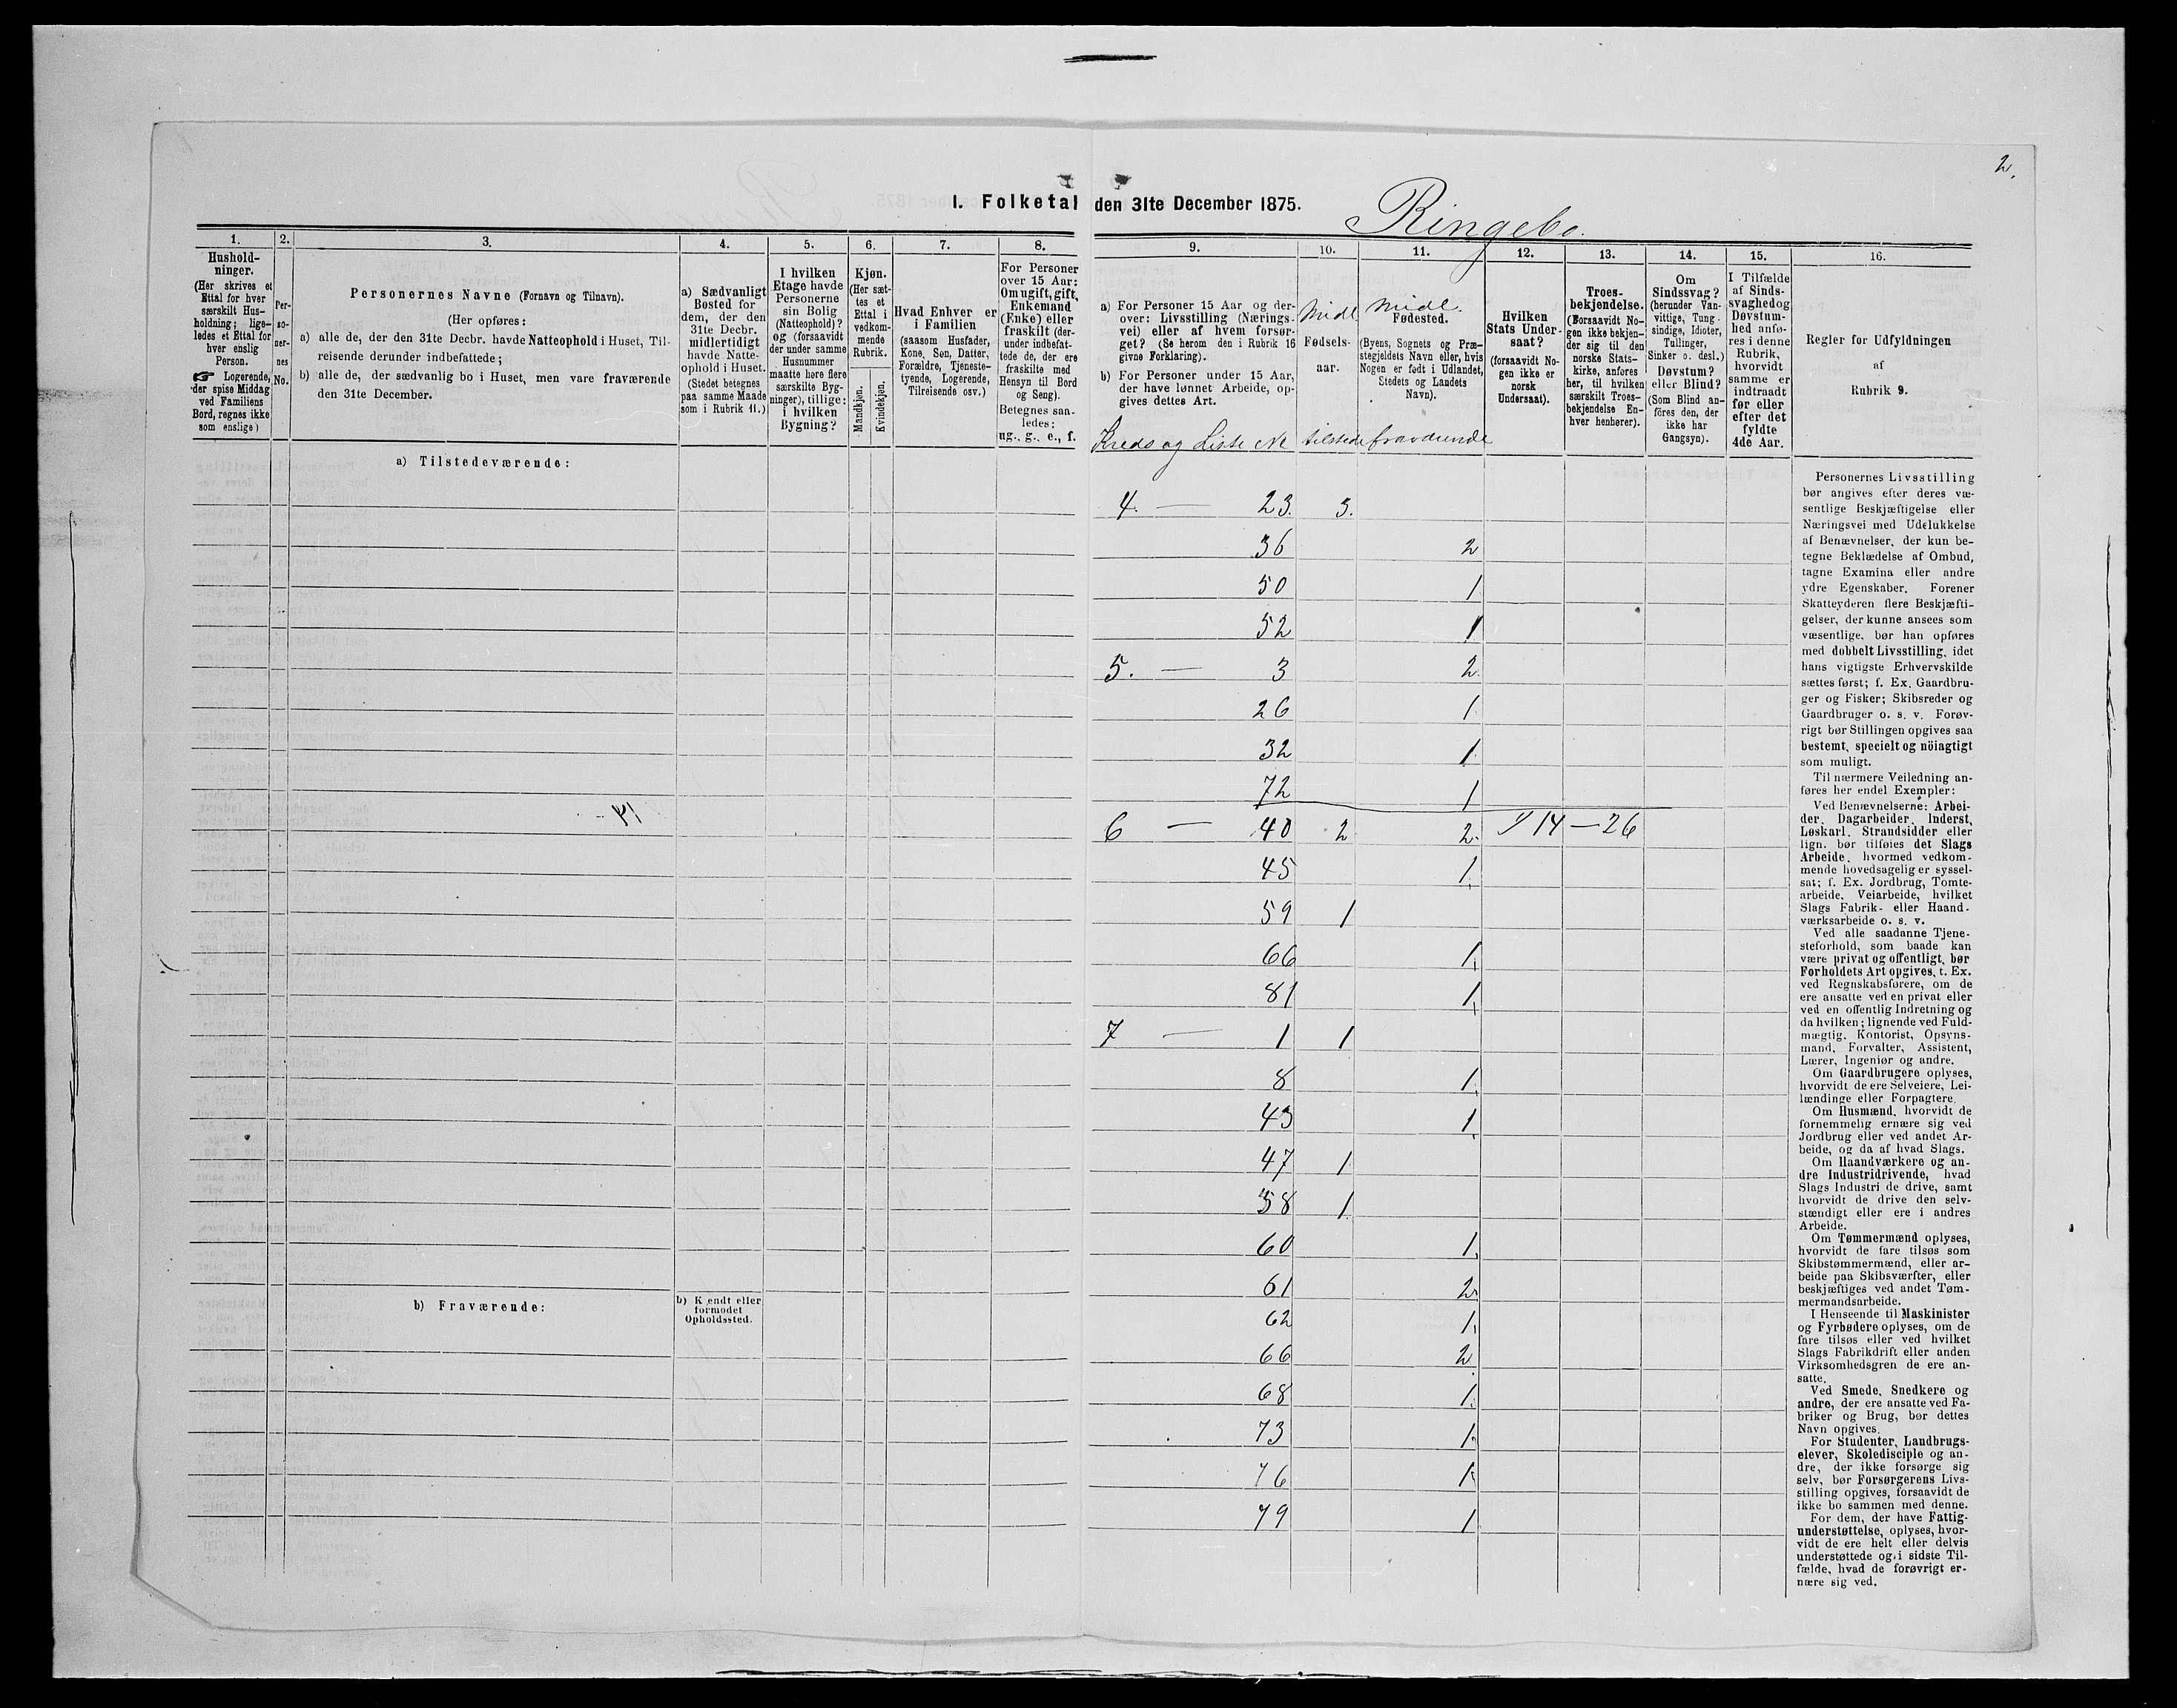 2.
I. Folketal den 31te December 1875.
Ringebo.
1.
Hushold-
ninger.
(Her skrives et
Ettal for hver
særskilt Hus-
holdning; lige-
ledes et Ettal for
hver enslig
Person.
☞ Logerende,
der spise Middag
ved Familiens
Bord, regnes ikke
som enslige)
2.
Per-
so-
ner-
nes
No.
3.
Personernes Navne (Fornavn og Tilnavn).
(Her opføres:
a) alle de, der den 31te Decbr. havde Natteophold i Huset, Til-
reisende derunder indbefattede;
b) alle de, der sædvanlig bo i Huset, men vare fraværende
den 31te December.
4.
a) Sædvanligt
Bosted for
dem, der den
31te Decbr.
midlertidigt
havde Natte-
ophold i Huset.
(Stedet betegnes
paa samme Maade
som i Rubrik 11.)
5.
I hvilken
Etage havde
Personerne
sin Bolig
(Natteophold)?
og (forsaavidt
der under samme
Husnummer
maatte høre flere
særskilte Byg-
ninger), tillige:
i hvilken
Bygning?
6.
Kjøn.
(Her sæt-
tes et
Ettal i
vedkom-
mende
Rubrik.
Mandkjøn.
Kvindekjøn.
7.
Hvad Enhver er
i Familien
(saasom Husfader,
Kone, Søn, Datter,
Forældre, Tjeneste-
tyende, Logerende,
Tilreisende osv.)
8.
For Personer
over 15 Aar:
Om ugift, gift,
Enkemand
(Enke) eller
fraskilt (der-
under indbefat-
tede de, der ere
fraskilte med
Hensyn til Bord
og Seng).
Betegnes saa-
ledes:
ug., g., e., f.
9.
a) For Personer 15 Aar og der-
over: Livsstilling (Nærings-
vei) eller af hvem forsør-
get? (Se herom den i Rubrik 16
givne Forklaring).
b) For Personer under 15 Aar,
der have lønnet Arbeide, op-
gives dettes Art.
10.
Midl
Fødsels-
aar.
11.
midl.
Fødested.
(Byens, Sognets og Præ-
stegjeldets Navn eller, hvis
Nogen er født i Udlandet,
Stedets og Landets
Navn).
12.
Hvilken
Stats Under-
saat?
(forsaavidt No-
gen ikke er
norsk
Undersaat).
13.
Troes-
bekjendelse.
(Forsaavidt No-
gen ikke bekjen-
der sig til den
norske Stats-
kirke, anføres
her, til hvilken
særskilt Troes-
bekjendelse En-
hver henhører).
14.
Om
Sindssvag?
(herunder Van-
vittige, Tung-
sindige, Idioter,
Tullinger,
Sinker o. desl.)
Døvstum?
eller Blind?
(Som Blind an-
föres den, der
ikke har
Gangsyn).
15.
I Tilfælde
af Sinds-
svaghed og
Døvstum-
hed anfø-
res i denne
Rubrik,
hvorvidt
samme er
indtraadt
før eller
efter det
fyldte
4de Aar.
16.
Regler for Udfyldningen
af
Rubrik 9.
Kreds og Liste No tilstede fraværende
a) Tilstedeværende:
4. — 23. 3.
36 2
50 1
52 1
5. — 3 2
26 1
32 1
72 1
6 — 40 2 2 14 — 26
45 1
59 1
66 1
81 1
7 — 1 1
8 1
43 1
47 1
58 1
60 1
61 2
62 1
66 2
68 1
73 1
76 1
79 1
b) Fraværende:
b) Kjendt eller
formodet
Opholdssted.
Personernes Livsstilling
bør angives efter deres væ-
sentlige Beskjæftigelse eller
Næringsvei med Udelukkelse
af Benævnelser, der kun be-
tegne Beklædelse af Ombud,
tagne Examina eller andre
ydre Egenskaber. Forener
Skatteyderen flere Beskjæfti-
gelser, der kunne ansees som
væsentlige, bør han opføres
med dobbelt Livsstilling, idet
hans vigtigste Erhvervskilde
sættes først; f. Ex. Gaardbru-
ger og Fisker; Skibsreder og
Gaardbruger o. s. v. Forøv-
rigt bør Stillingen opgives saa
bestemt, specielt og nöiagtigt
som muligt.
Til nærmere Veiledning an-
føres her endel Exempler:
Ved Benævnelserne: Arbei-
der, Dagarbeider, Inderst,
Løskarl, Strandsidder eller
lign. bør tilføies det Slags
Arbeide, hvormed vedkom-
mende hovedsagelig er syssel-
sat; f. Ex. Jordbrug, Tomte-
arbeide, Veiarbeide, hvilket
Slags Fabrik- eller Haand-
værksarbeide o. s. v.
Ved alle saadanne Tjene-
steforhold, som baade kan
være privat og offentligt, bør
Forholdets Art opgives, t. Ex.
ved Regnskabsførere, om de
ere ansatte ved en privat eller
ved en offentlig Indretning og
da hvilken; lignende ved Fuld-
mægtig, Kontorist, Opsyns-
mand, Forvalter, Assistent,
Lærer, Ingeniør og andre.
Om Gaardbrugere oplyses,
hvorvidt de ere Selveiere, Lei-
lændinge eller Forpagtere.
Om Husmænd, hvorvidt de
fornemmelig ernære sig ved
Jordbrug eller ved andet Ar-
beide, og da af hvad Slags.
Om Haandværkere og an-
dre Industridrivende, hvad
Slags Industri de drive, samt
hvorvidt de drive den selv-
stændigt eller ere i andres
Arbeide.
Om Tømmermænd oplyses,
hvorvidt de fare tilsøs som
Skibstømmermænd, eller ar-
beide paa Skibsværfter, eller
beskjæftiges ved andet Tøm-
mermandsarbeide.
I Henseende til Maskinister
og Fyrbødere oplyses, om de
fare tilsøs eller ved hvilket
Slags Fabrikdrift eller anden
Virksomhedsgren de ere an-
satte.
Ved Smede, Snedkere og
andre, der ere ansatte ved Fa-
briker og Brug, bør dettes
Navn opgives.
For Studenter, Landbrugs-
elever, Skoledisciple og an-
dre, der ikke forsørge sig
selv, bør Forsørgerens Livs-
stilling opgives, forsaavidt de
ikke bo sammen med denne.
For dem, der have Fattig-
understøttelse, oplyses, hvor-
vidt de ere helt eller delvis
understøttede og i sidste Til-
fælde, hvad de forøvrigt er-
nære sig ved.